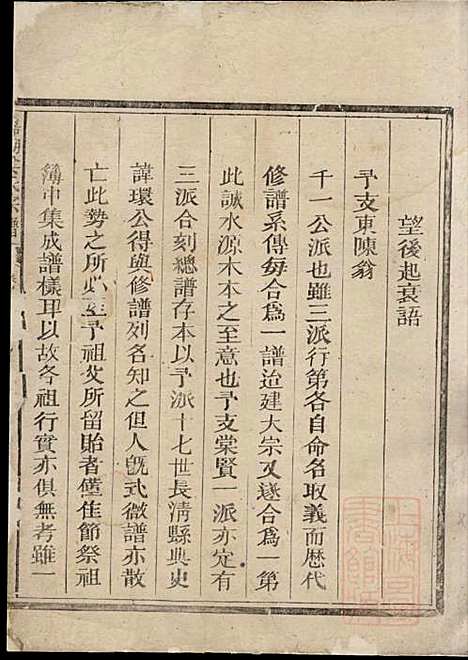 望後起衰語
予支東陳翁
千一公派也雖三派行第各自命名取義而歴代
修譜系傳每合爲一譜迨建大宗又遂合爲一第
此誠水源木本之至意也予支棠賢一派亦定有
三派合刻總譜存本以予派十七世長清縣典史
諱環公得與修譜列名知之但人旣式微譜亦散
亡此勢之所必至予祖父所留貽者僅隹節祭祖
簿中集成譜樣耳以故各祖行實亦俱無考雖一